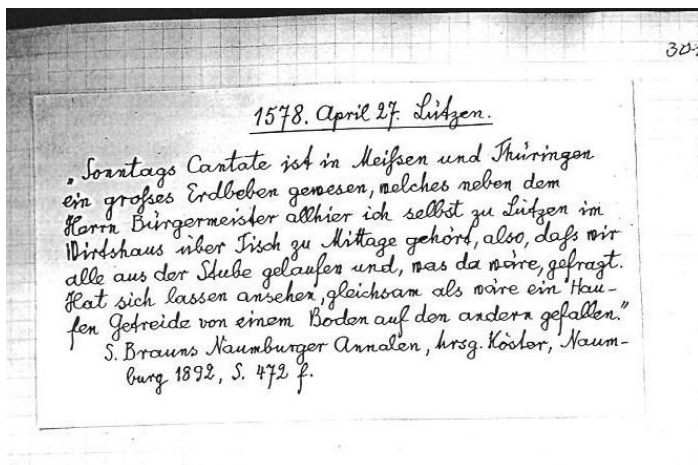 30
1578. April 27. Lützen.
„Sonntags Cantate ist in Meißen und Thüringen
ein großes Erdbeben gewesen, welches neben dem
Herrn Bürgermeister allhier ich selbst zu Lützen im
Wirtshaus über Tisch zu Mittage gehört, also, daß wir
alle aus der Stube gelaufen und, was da wäre, gefragt.
Hat sich lassen ansehen, gleichsam als wäre ein Hau-
fen Getreide von einem Boden auf den andern gefallen."
S. Brauns Naumburger Annalen, hrsg. Köster, Naum-
burg 1892, S. 472 f.